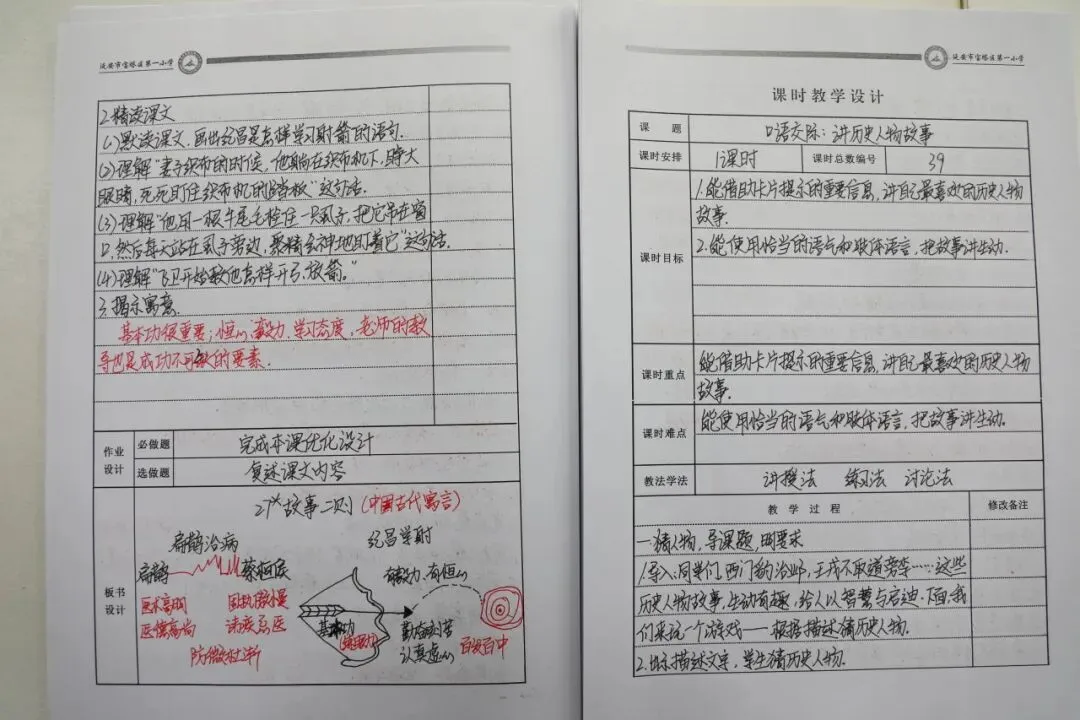 延安市宝塔区第一小学
2.精读课文
(1)默读课文,画出纪昌是怎样学习射箭的语句.
(2)理解“妻子织布的时候,他躺在织布机下,睁大
眼睛,死死盯住织布机的踏板”这句话.
(3)理解“他用一根牛尾毛拴住一只虱子,把它吊在窗
口,然后每天站在虱子旁边,聚精会神地盯着它”这句话.
(4)理解“飞卫开始教他怎样开弓,放箭。”
3.揭示寓意.
基本功很重要;恒心,毅力,学习态度,老师的教
导也是成功不可缺的要素.
作业设计
必做题
完成本课优化设计
选做题
复述课文内容
板书设计
27* 故事二则 (中国古代寓言)
扁鹊治病
纪昌学射
扁鹊
蔡桓侯
有毅力,有恒心
医术高明
固执傲慢
医德高尚
讳疾忌医
防微杜渐
基本功
(眼力)
勤奋刻苦
认真虚心
百发百中
延安市宝塔区第一小学
课时教学设计
课题
口语交际:讲历史人物故事
课时安排
1课时
课时总数编号
39
课时目标
1.能借助卡片提示的重要信息,讲自己最喜欢的历史人物
故事.
2.能使用恰当的语气和肢体语言,把故事讲生动.
课时重点
能借助卡片提示的重要信息,讲自己最喜欢的历史人物
故事.
课时难点
能使用恰当的语气和肢体语言,把故事讲生动.
教法学法
讲授法 练习法 讨论法
教学过程
修改备注
一.猜人物,导课题,明要求
1.导入:同学们,西门豹治邺,王戎不取道旁李……这些
历史人物故事,生动有趣,给人以智慧与启迪.下面,我
们来玩一个游戏——根据描述猜历史人物.
2.出示描述文字,学生猜历史人物.